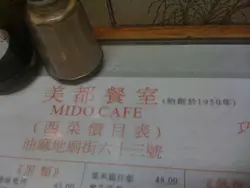 美都餐室 (始創於1950年)
MIDO CAFE
(西菜價目表)
油麻地廟街六十三號
48.00